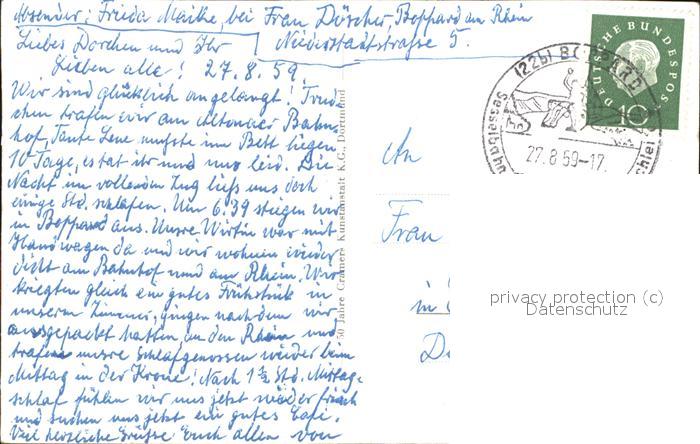 Absender: Frieda Maike, bei Frau Döscher, Boppard am Rhein
Niederstadtstrasse 5.
Liebes Dorchen und Ihr
Lieben alle! 27.8.59.
Wir sind glücklich angelangt!
trafen wir am Altonaer Bahn-
hof, Tante Lene mußte im Bett liegen
10 Tage, es tat ihr und uns leid. Die
Nacht im vollenden Zug ließ uns doch
einige Std. schlafen. Um 6.39 stiegen wir
in Boppard aus. Unsre Wirtin war mit
Handwagen da und wir wohnen wieder
dicht am Bahnhof und am Rhein. Wir
kriegten gleich ein gutes Frühstück in
unserem Zimmer, gingen nachdem wir
ausgepackt hatten, an den Rhein und
trafen unsre Schlafgenossen wieder beim
Mittag in der Krone! Nach 1½ Std. Mittag-
schlaf fühlen wir uns jetzt wieder frisch
und suchen uns jetzt ein gutes Café.
Viel herzliche Grüße Euch allen von
50 Jahre Cramers Kunstanstalt K.G., Dortmund
An
Frau
in
DEUTSCHE BUNDESPOST
10
(22b) BOPPARD
27.8.59-17
privacy protection (c)
Datenschutz